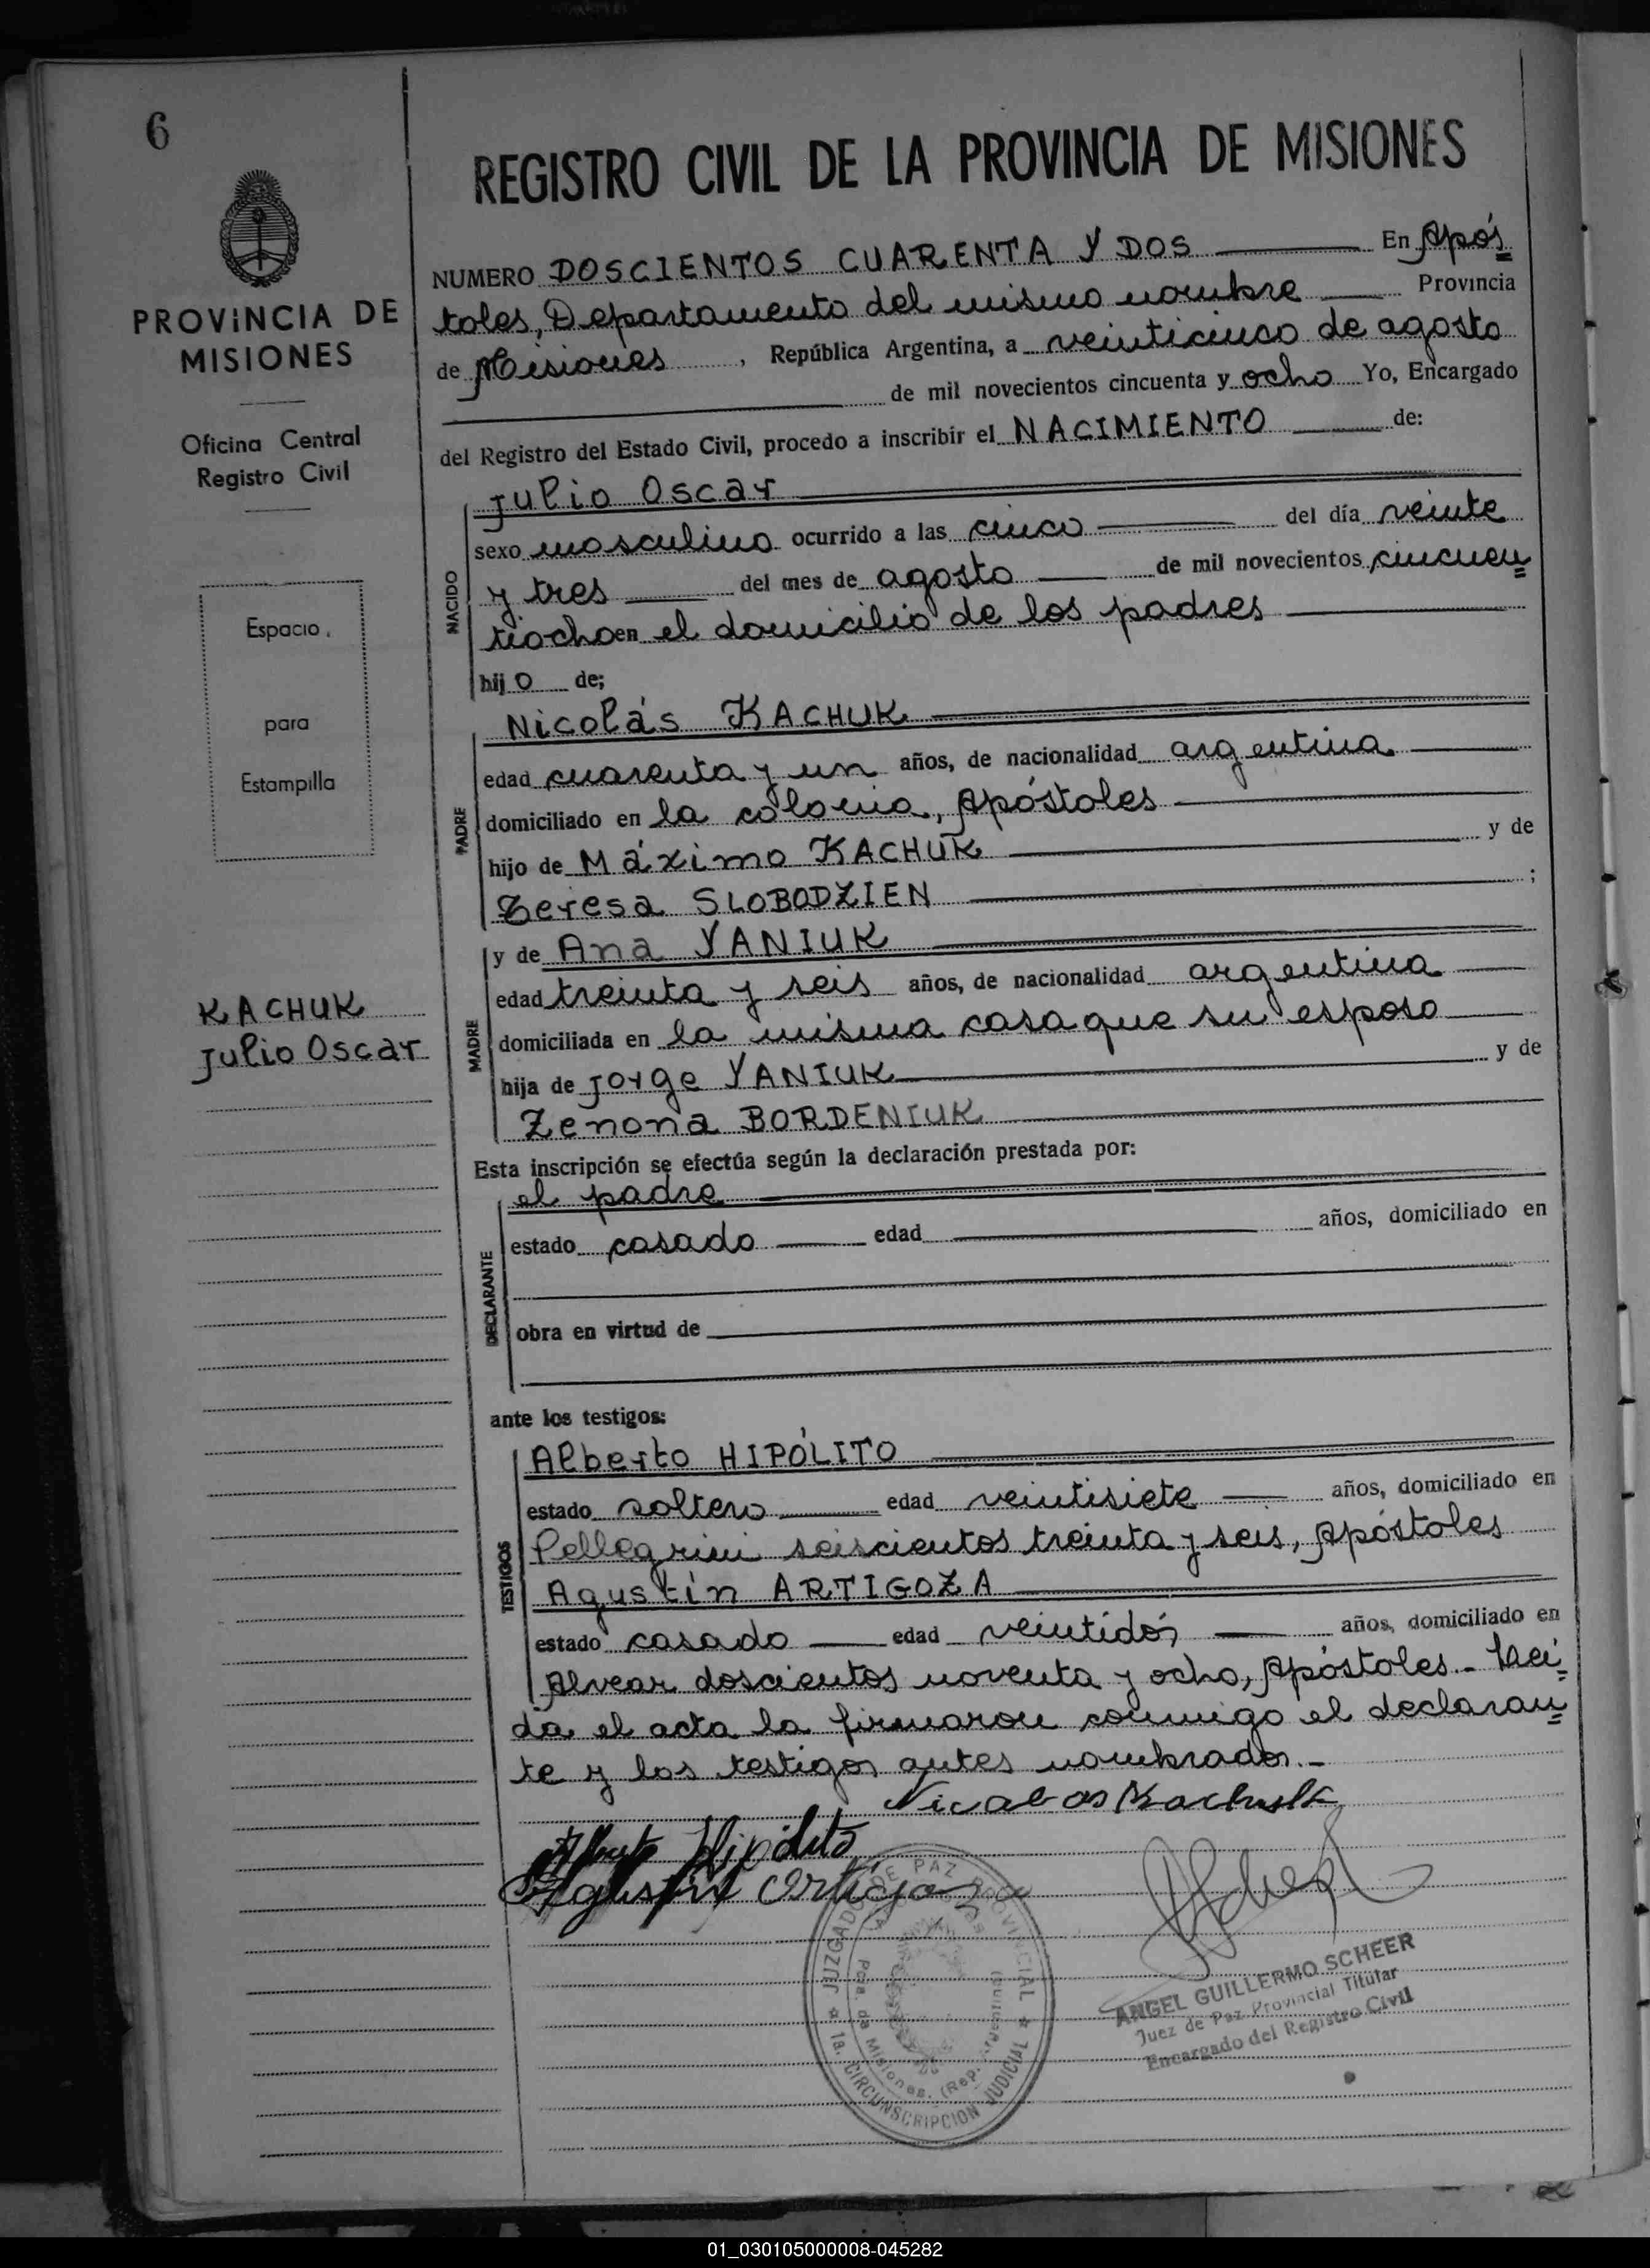 6
REGISTRO CIVIL DE LA PROVINCIA DE MISIONES
PROVINCIA DE
MISIONES
Oficina Central
Registro Civil
Espacio
para
Estampilla
KACHUK
Julio Oscar
NUMERO DOSCIENTOS CUARENTA Y DOS En Após
toles, Departamento del mismo nombre Provincia
de Misiones, República Argentina, a veinticinco de agosto
de mil novecientos cincuenta y ocho Yo, Encargado
del Registro del Estado Civil, procedo a inscribir el NACIMIENTO de:
NACIDO
Julio Oscar
sexo masculino ocurrido a las cinco del día veinte
y tres del mes de agosto de mil novecientos cincuen
tiocho en el domicilio de los padres
hijo de;
PADRE
Nicolás KACHUK
edad cuarenta y un años, de nacionalidad argentina
domiciliado en la colonia, Apóstoles
hijo de Máximo KACHUK y de
Teresa SLOBODZIEN ;
MADRE
y de Ana YANIUK
edad treinta y seis años, de nacionalidad argentina
domiciliada en la misma casa que su esposo
hija de Jorge YANIUK y de
Zenona BORDENIUK
Esta inscripción se efectúa según la declaración prestada por:
DECLARANTE
el padre
estado casado edad años, domiciliado en
obra en virtud de
ante los testigos:
TESTIGOS
Alberto HIPÓLITO
estado soltero edad veintisiete años, domiciliado en
Pellegrini seiscientos treinta y seis, Apóstoles
Agustín ARTIGOZA
estado casado edad veintidós años, domiciliado en
Alvear doscientos noventa y ocho, Apóstoles.- Leí
da el acta la firmaron conmigo el declaran
te y los testigos antes nombrados.-
Nicolas Kachuk
Alberto Hipólito
Agustin Artigoza
JUZGADO DE PAZ PROVINCIAL
1a. CIRCUNSCRIPCION JUDICIAL
Pcia. de Misiones. (Rep. Argentina)
ANGEL GUILLERMO SCHEER
Juez de Paz Provincial Titular
Encargado del Registro Civil
01_030105000008-045282